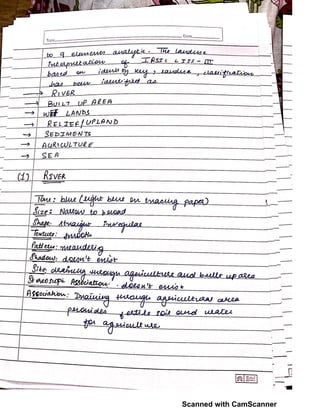 to 9 elements analysis. The landuse
Interpretation of IRSIC LISS-III
based on identify key, landuse, classification
has been identified as
→ RIVER
→ BUILT UP AREA
→ WET LANDS
→ RELIEF/UPLAND
→ SEDIMENTS
→ AGRICULTURE
→ SEA
(1) RIVER
Tone: blue (light blue on tracing paper)
Size: Narrow to broad
Shape: straight Irregular
Texture: smooth
Pattern: meandering
Shadow: doesn't exist
Site: draining through agriculture and built up area
Stereoscopic Association: doesn't exist
Association: Draining through agricultural area
provides fertile soil and water
for agriculture.
Scanned with CamScanner